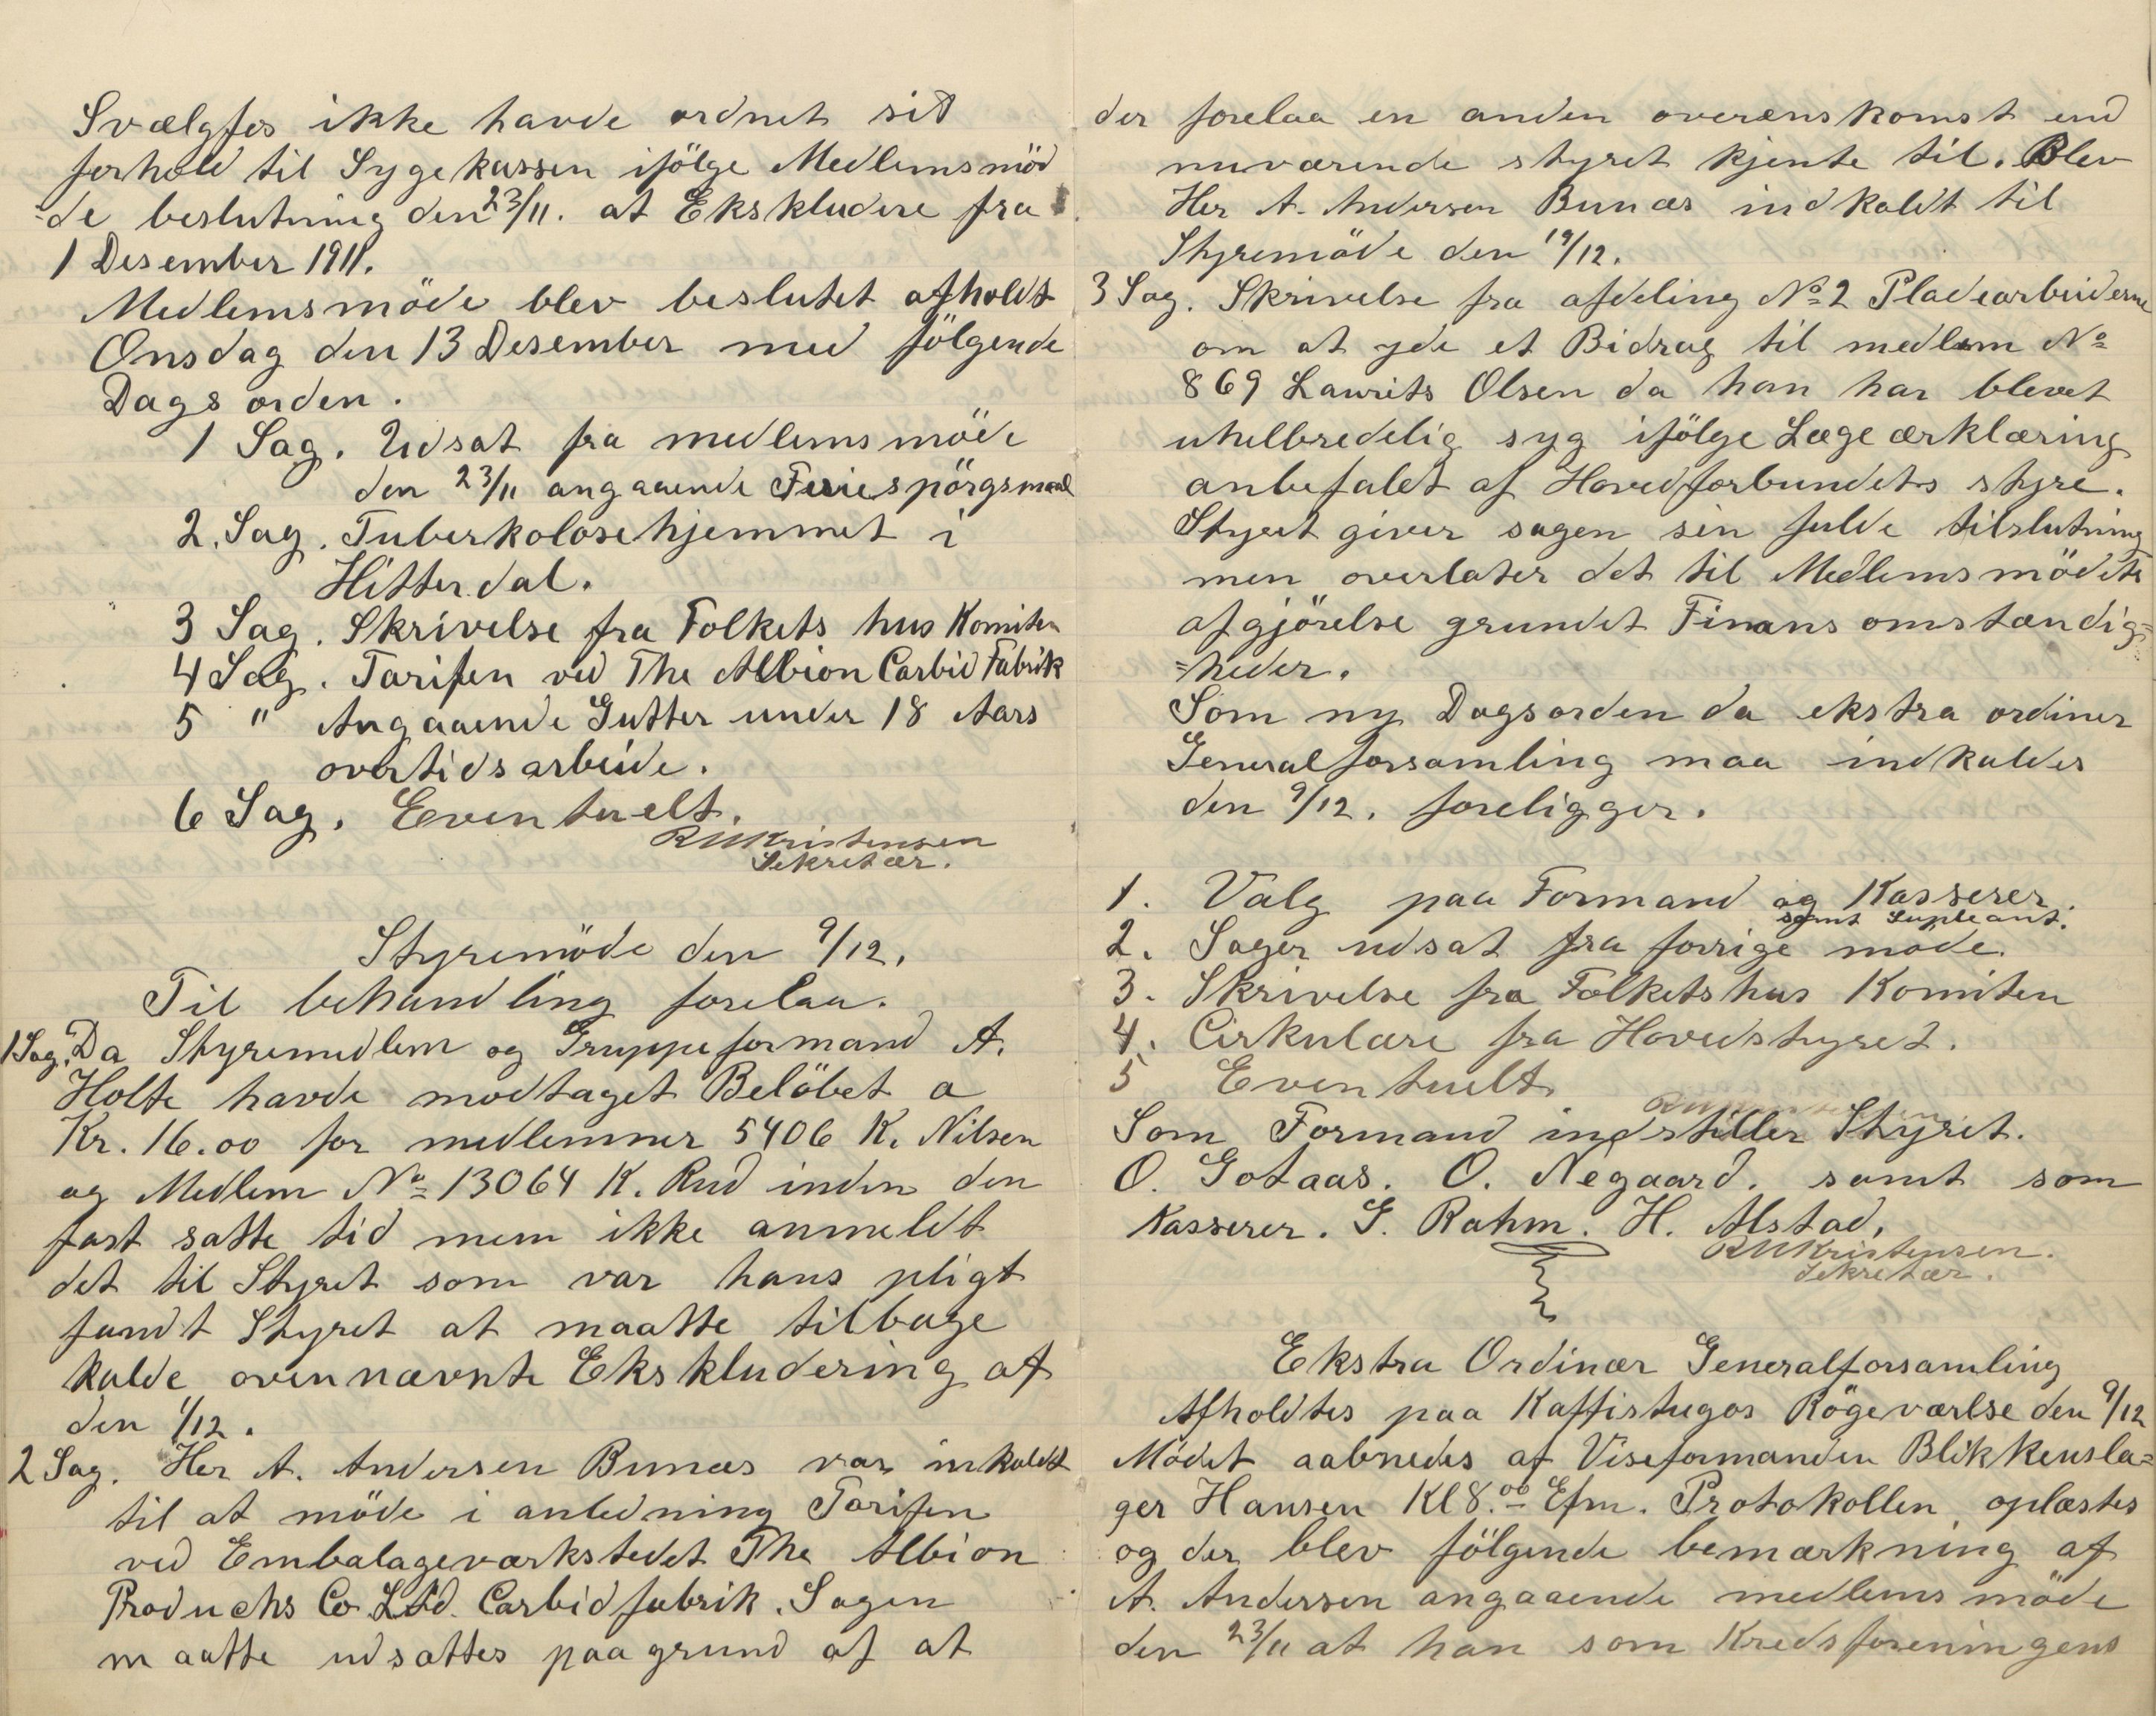 Svælgfos ikke havde ordnet sit
forhold til Sygekassen ifölge Medlemsmöd
=de beslutning den 23/11. at Ekskludere fra
1 Desember 1911.
Medlemsmöde blev beslutet afholdt
Onsdag den 13 Desember med fölgende
Dagsorden.
1 Sag. Udsat fra medlemsmöde
den 23/11 angaaende Feriespörgsmaal
2. Sag. Tuberkolosehjemmet i
Hitterdal.
3 Sag. Skrivelse fra Folkets hus Komiten
4 Sag. Tarifen ved The Albion Carbid Fabrik
5 " Angaaende Gutter under 18 Aars
overtidsarbeide.
6 Sag. Eventuelt.
RMKristensen
Sekretær.
Styremöde den 9/12.
Til behandling forelaa.
1 Sag. Da Styremedlem og Gruppeformand A.
Holte havde modtaget Belöbet a
Kr. 16.00 for medlemmer 5406 K. Nilsen
og Medlem No 13064 K. Rud inden den
fast satte tid mem ikke anmeldt
det til Styret som var hans pligt
fandt Styret at maatte tilbage
kalde ovennævnte Ekskludering af
den 1/12.
2 Sag. Her A. Andersen Bunæs var inkaldt
til at möde i anledning Tarifen
ved Embalageværkstedet The Albion
Produchs Co. Ltd. Carbidfabrik. Sagen
maatte udsattes paa grund af at
der forelaa en anden overenskomst end
nuværende styret kjente til. Blev
Her A. Andersen Bunæs indkaldt til
Styremöde den 19/12.
3 Sag. Skrivelse fra afdeling No 2 Pladearbeiderne
om at yde et Bidrag til medlem No
869 Laurits Olsen da han har blevet
uhelbredelig syg ifölge Lægeærklæring
anbefalet af Hovedforbundets styre.
Styret giver sagen sin fulde tilslutning
men overlater det til Medlemsmödets
afgjörelse grundet Finans omstændig=
=heder.
Som ny Dagsorden da ekstra ordiner
Generalforsamling maa indkaldes
den 9/12. foreligger.
1. Valg paa Formand og Kasserer.
samt Supleant.
2. Sager udsat fra forrige möde.
3. Skrivelse fra Folketshus Komiten
4. Cirkulære fra Hovedstyret.
5 Eventuelt
Som Formand indstiller Styret.
O. Gotaas. O. Negaard. samt som
Kasserer. G. Rahm. H. Alstad.
RMKristensen.
Sekretær.
Ekstra Ordinær Generalforsamling
Afholdtes paa Kaffistugos Rögeværlse den 9/12
Mödet aabnedes af Viseformanden Blikkensla=
ger Hansen Kl 8.00 Efm. Protokollen oplæstes
og der blev fölgende bemærkning af
A. Andersen angaaende medlemsmöde
den 23/11 at han som Kredsforeningens